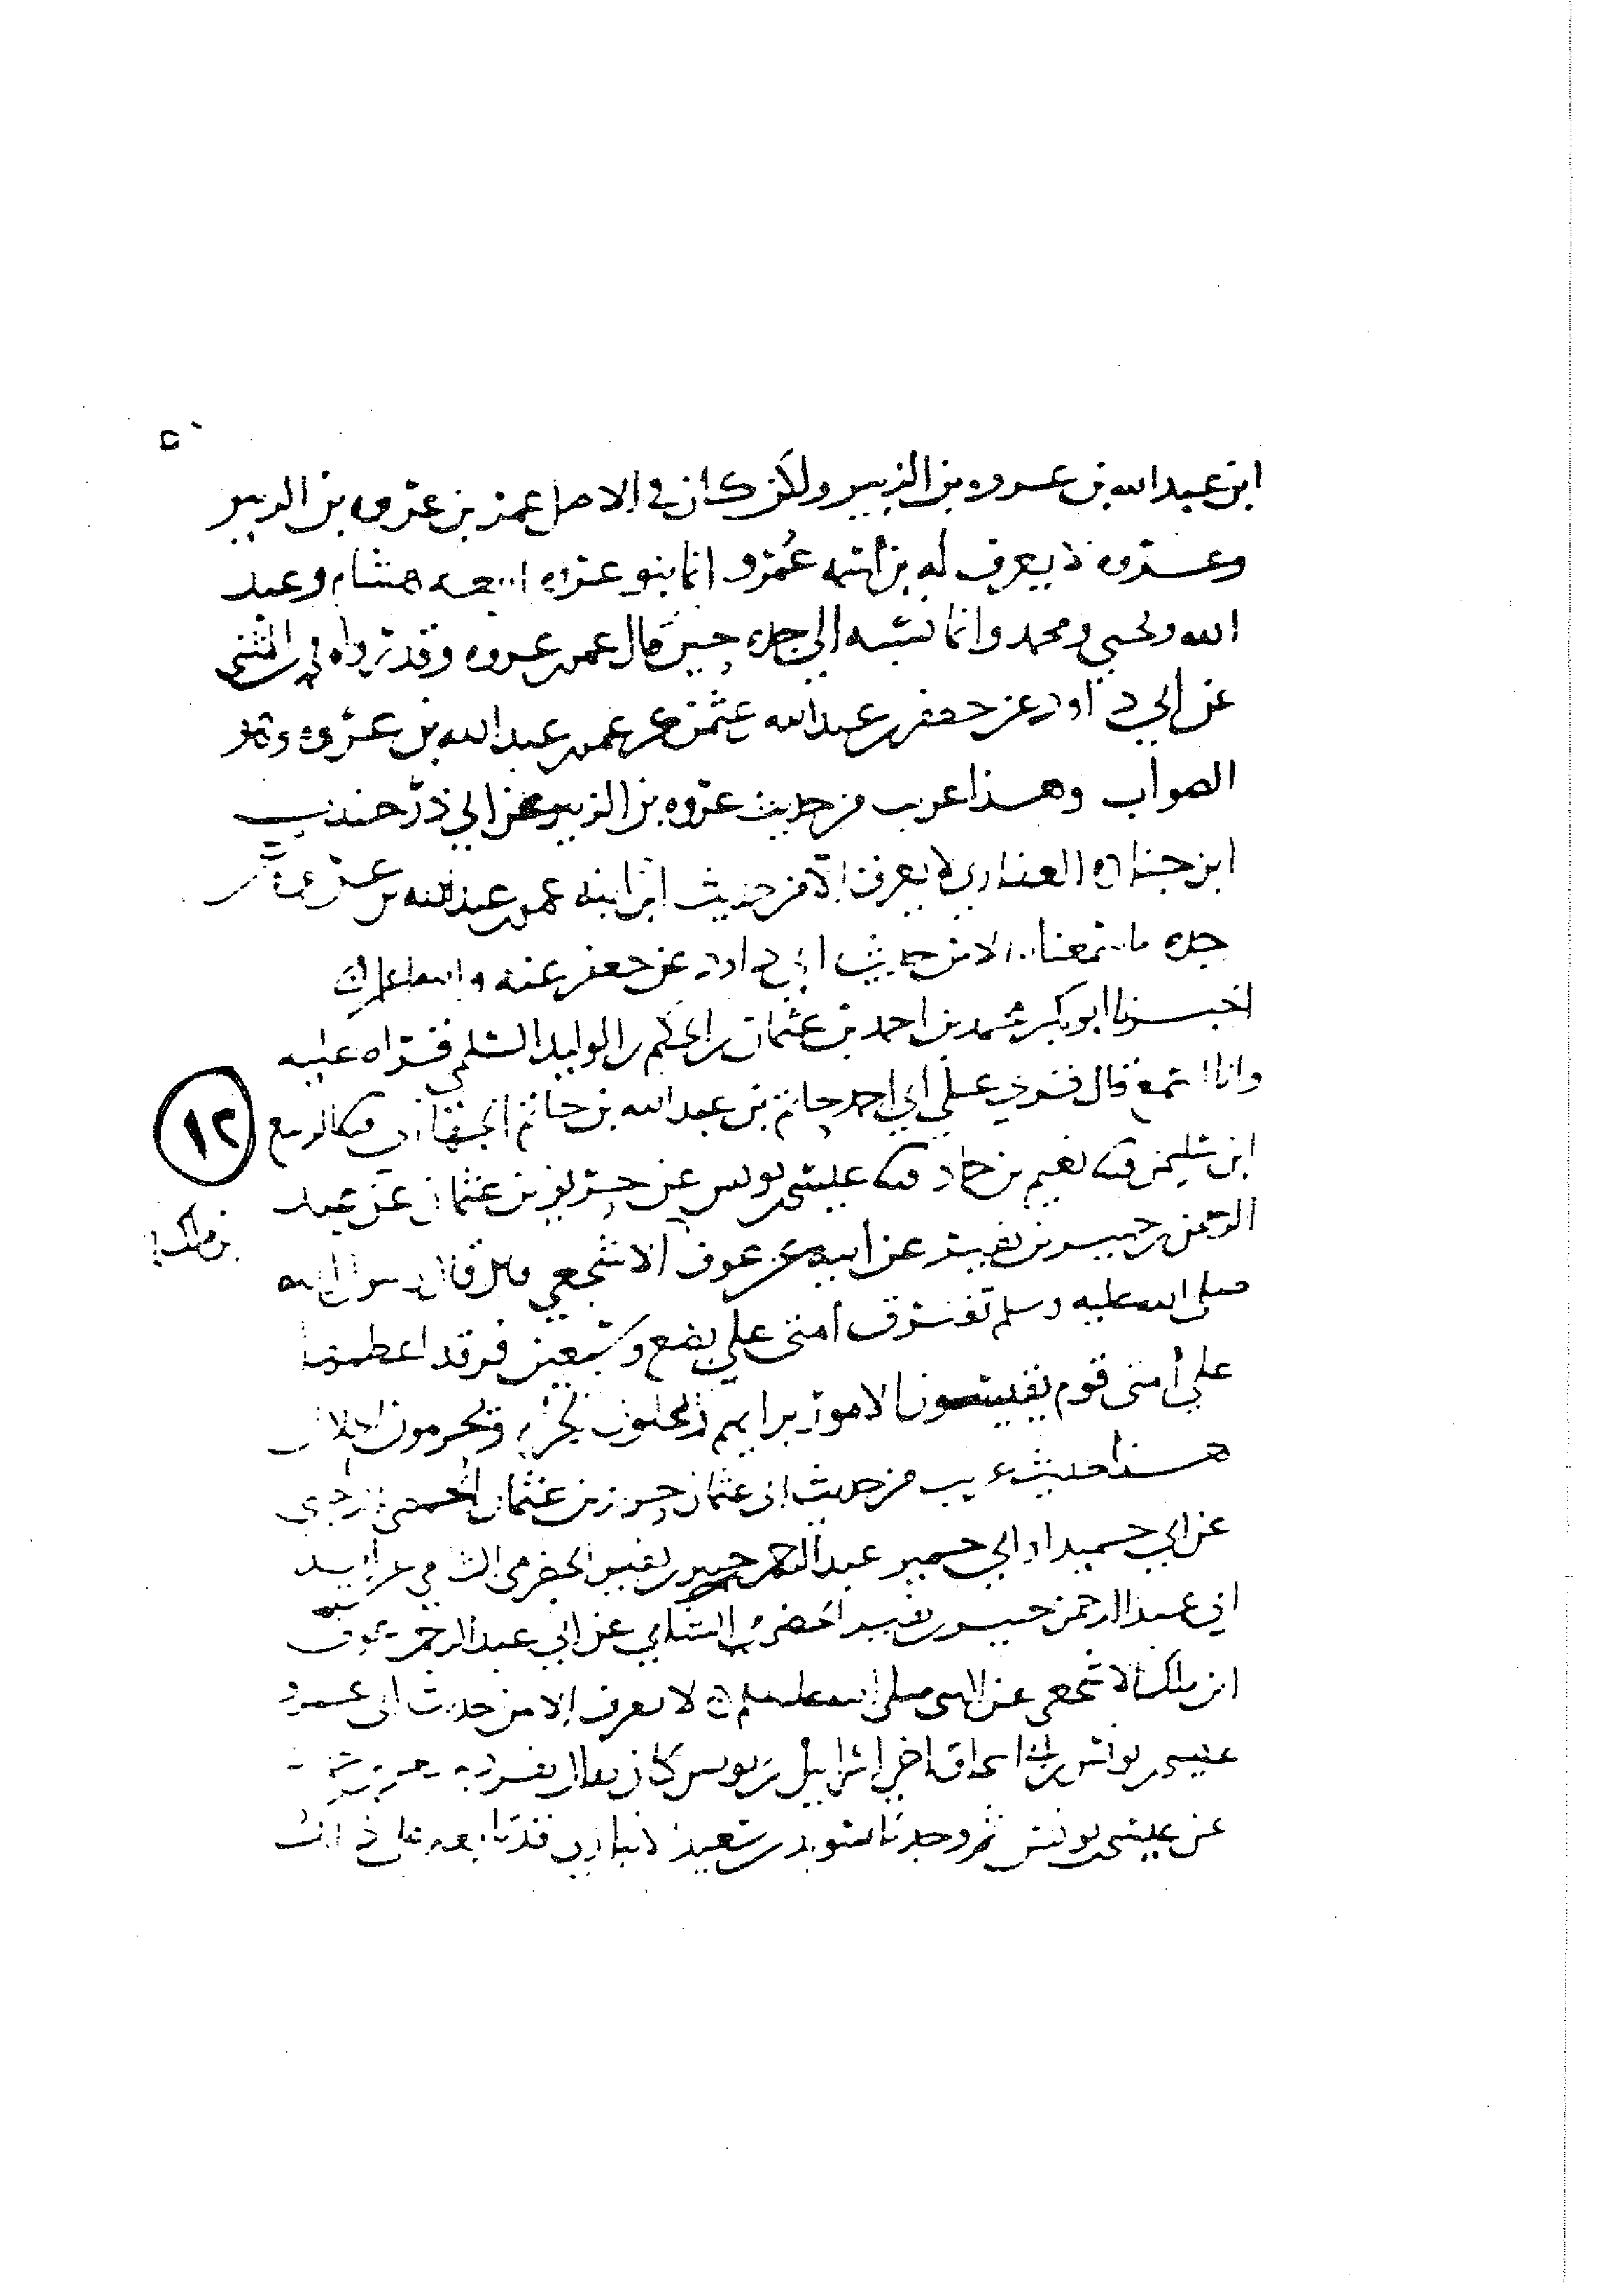 ابن عبد الله بن عروه بن الزبير ولكن كان في الاصل عمر بن عروه بن الزبير
وعروه لا يعرف له بن اسمه عمر و انما بنو عروه اربعه هشام وعبد
الله ويحيى ومحمد وانما نسبه الى جده حين قال عمر بن عروه وقد رواه ابن المثنى
عن ابي داود عن جعفر بن عبد الله بن عثمن عن عمر بن عبد الله بن عروه وهو
الصواب وهذا غريب من حديث عروه بن الزبير عن ابي ذر جندب
ابن جناده الغفاري لا يعرف الا من حديث ابن ابنه عمر بن عبد الله بن عروه عن
جده ما سمعناه الا من حديث ابي داود عن جعفر عنه والله اعلم
اخبرنا ابو بكر محمد بن احمد بن عثمان بن ابي الحكم بن الوليد السلمي قراه عليه
وانا اسمع قال قرئ علي ابي احمد حاتم بن عبد الله بن حاتم الجهازي الربيع
١٢
ابن سليمن نعيم بن حماد عيسى بن يونس عن حريز بن عثمان عن عبد
الرحمن بن جبير بن نفير عن ابيه عن عوف الاشجعي قال قال رسول الله
بن مالك
صلى الله عليه وسلم تفترق امتى علي بضع وسبعين فرقه اعظمها
علي أمتى قوم يقيسون الامور برايهم فيحلون الحرام ويحرمون الحلال
هذا حديث غريب من حديث ابى عثمان حريز بن عثمان الحمصي الرحبى
عن ابي حميد او ابي حمير عبد الرحمن بن جبير بن نفير الحضرمى الشامي عن ابيه
ابي عبد الرحمن جبير بن نفير الحضرمي الشامي عن ابي عبد الرحمن عوف
ابن ملك الاشجعي عن النبي صلى الله عليه وسلم لا يعرف الا من حديث ابى عمرو
عيسى بن يونس بن ابي اسحاق اخي اسرائيل بن يونس كان يقال تفرد به
عن عيسى بن يونس ثم وجدنا سويد بن سعيد الانباري قد تابعه على ذلك